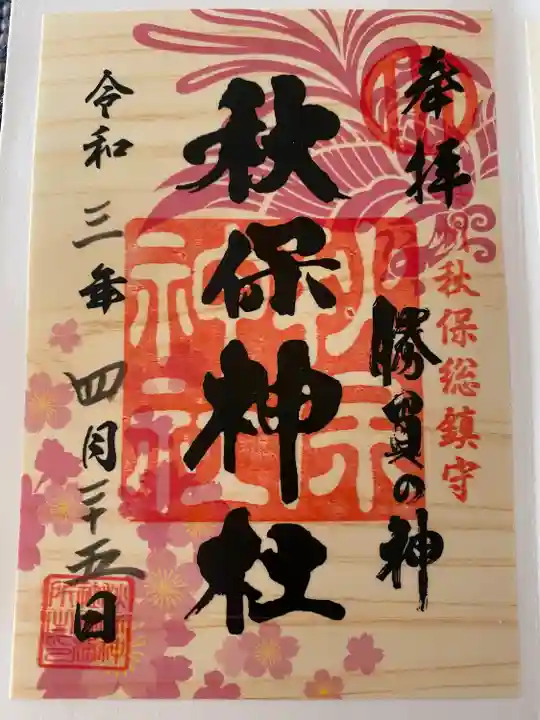 奉拝
秋保総鎮守
勝負の神
秋保神社
令和三年四月二十五日